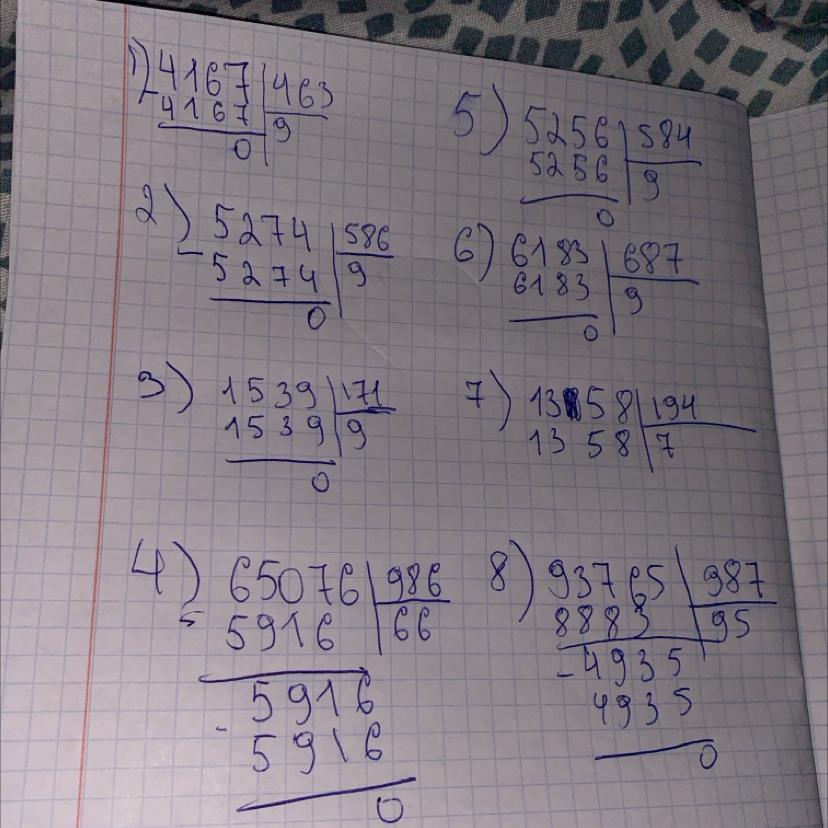 1) 4167 463
- 4167 9
0
2) 5274 586
- 5274 9
0
3) 1539 171
1539 9
0
4) 65076 986
- 5916 66
5916
- 5916
0
5) 5256 584
5256 9
0
6) 6183 687
6183 9
0
7) 1358 194
1358 7
8) 93765 987
8883 95
- 4935
4935
0